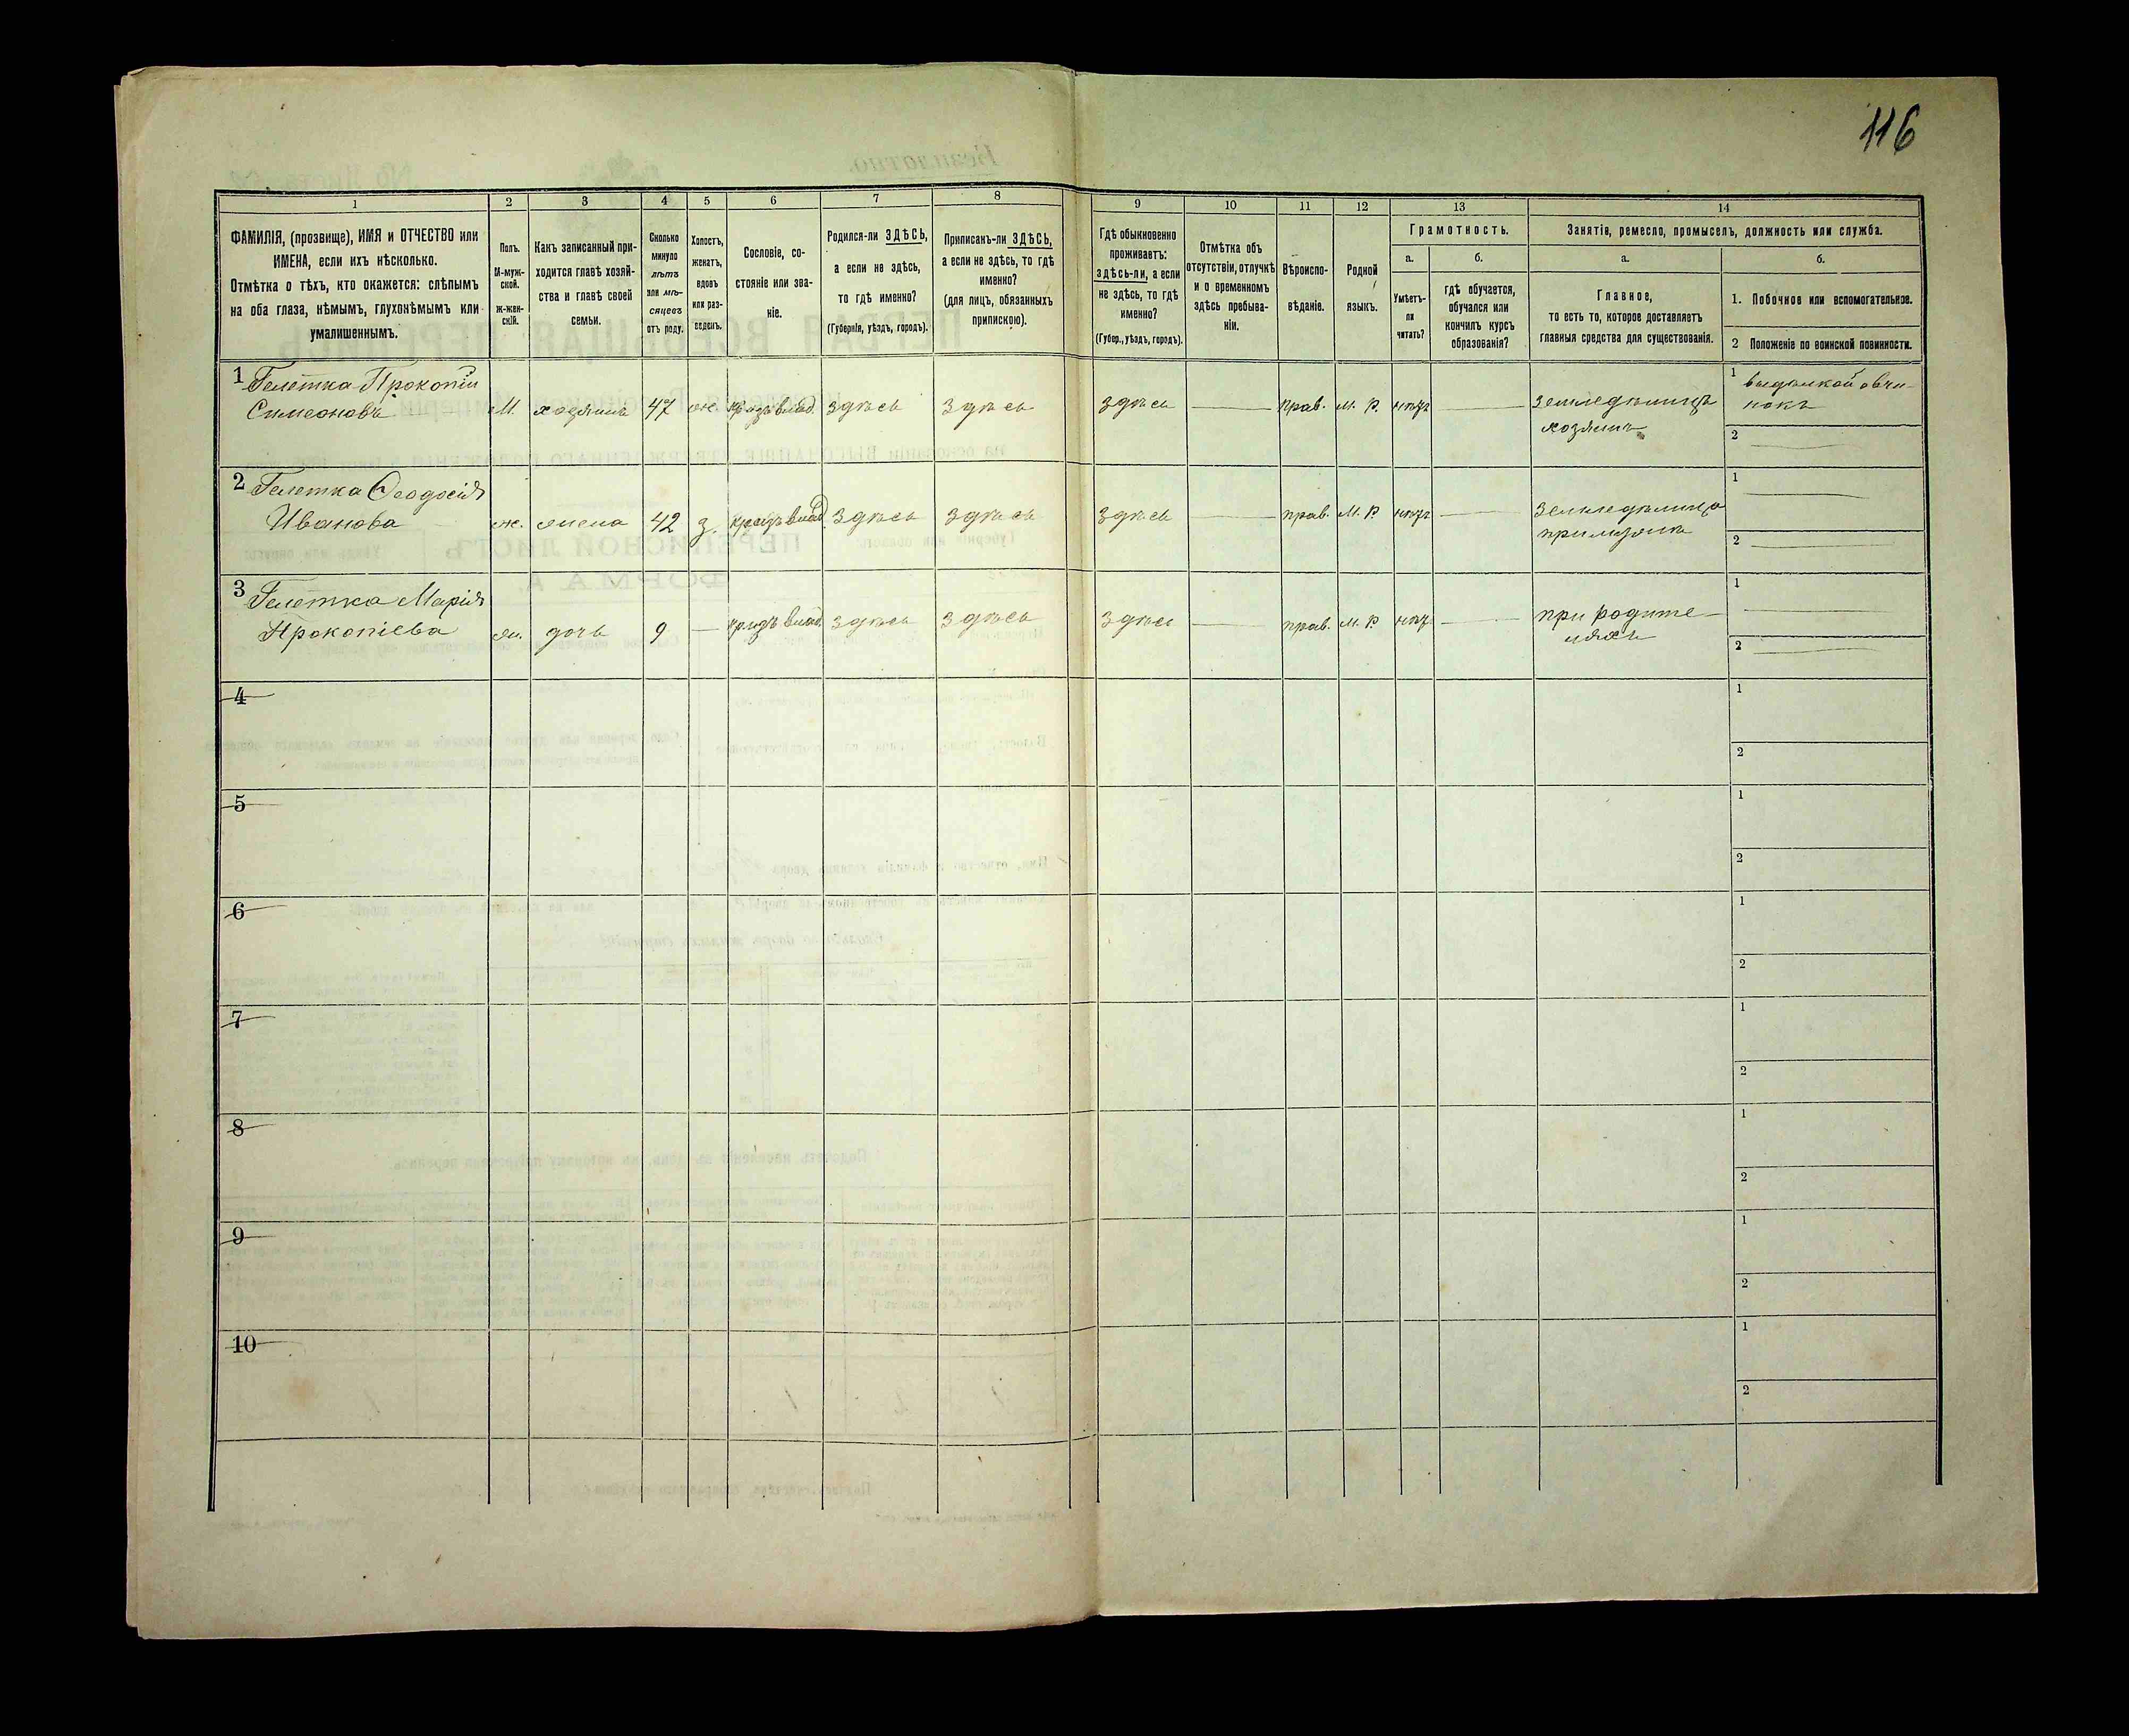 116
1
2
3
4
5
6
7
8
9
10
11
12
13
14
ФАМИЛІЯ, (прозвище), ИМЯ и ОТЧЕСТВО или
ИМЕНА, если ихъ нѣсколько.
Отмѣтка о тѣхъ, кто окажется: слѣпымъ
на оба глаза, нѣмымъ, глухонѣмымъ или
умалишеннымъ.
Полъ.
М-муж-
ской.
ж-жен-
скій.
Какъ записанный при-
ходится главѣ хозяй-
ства и главѣ своей
семьи.
Сколько
минуло
лѣтъ
или мѣ-
сяцевъ
отъ роду.
Холостъ,
женатъ,
вдовъ
или раз-
веденъ.
Сословіе, со-
стояніе или зва-
ніе.
Родился-ли ЗДѢСЬ,
а если не здѣсь,
то гдѣ именно?
(Губернія, уѣздъ, городъ).
Приписанъ-ли ЗДѢСЬ,
а если не здѣсь, то гдѣ
именно?
(для лицъ, обязанныхъ
припискою).
Гдѣ обыкновенно
проживаетъ:
здѣсь-ли, а если
не здѣсь, то гдѣ
именно?
(Губер., уѣздъ, городъ).
Отмѣтка объ
отсутствіи, отлучкѣ
и о временномъ
здѣсь пребыва-
ніи.
Вѣроиспо-
вѣданіе.
Родной
языкъ.
Грамотность.
а.
Умѣетъ-
ли
читать?
б.
гдѣ обучается,
обучался или
кончилъ курсъ
образованія?
Занятіе, ремесло, промыселъ, должность или служба.
а.
Главное,
то есть то, которое доставляетъ
главныя средства для существованія.
б.
1. Побочное или вспомогательное.
2 Положеніе по воинской повинности.
1 Гелетка Прокопій
Симеоновъ М. хозяинъ 47 ж. здѣсь здѣсь здѣсь прав. М. Р. нѣтъ
земледѣлецъ
хозяинъ
1 выдѣлкой овчи-
нокъ
2
2 Гелетка Ѳеодосія
Иванова ж. жена 42 з. здѣсь здѣсь здѣсь прав. М. Р. нѣтъ
земледѣлица
при мужѣ
1
2
3 Гелетка Марія
Прокопіева ж. дочь 9 здѣсь здѣсь здѣсь прав. М. Р. нѣтъ
при родите-
ляхъ
1
2
4
1
2
5
1
2
6
1
2
7
1
2
8
1
2
9
1
2
10
1
2